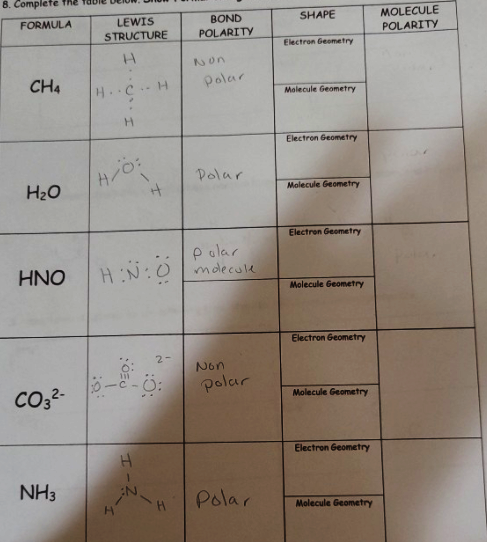 8. Complete the table below. Show
FORMULA
LEWIS
STRUCTURE
BOND
POLARITY
SHAPE
MOLECULE
POLARITY
CH4
H
H ·· C ·· H
H
Non
polar
Electron Geometry
Molecule Geometry
H2O
:Ö:
H / \ H
Polar
Electron Geometry
Molecule Geometry
HNO
H :N: O
Polar
molecule
Electron Geometry
Molecule Geometry
CO3²-
2-
O
O - C - O:
Non
polar
Electron Geometry
Molecule Geometry
NH3
H
:N
H H
Polar
Electron Geometry
Molecule Geometry